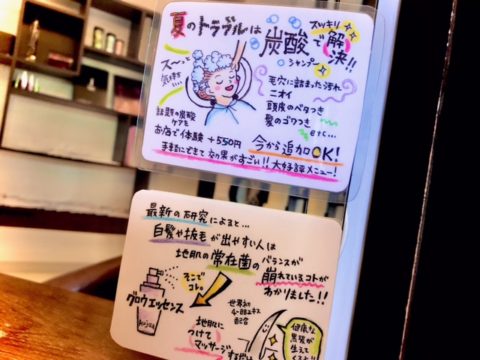 夏のトラブルは
炭酸
シャンプー
で
スッキリ
解決!!
ス〜ッと
気持ち…
毛穴に詰まった汚れ
ニオイ
頭皮のベタつき
髪のゴワつき
etc…
話題の炭酸
ケアを
お店で体験 +550円
今から追加OK!
手軽にできて効果がすごい!! 大好評メニュー!
最新の研究によると…
白髪や抜毛が出やすい人は
地肌の常在菌のバランスが
崩れているコトが
わかりました!!
そこで
コレ。
グロウエッセンス
配合
地肌に
つけて
マッサージ
健康な
黒髪が
生えて